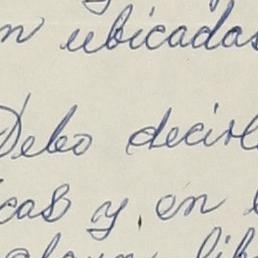 n ubicadas
Debo decirl
cas y en